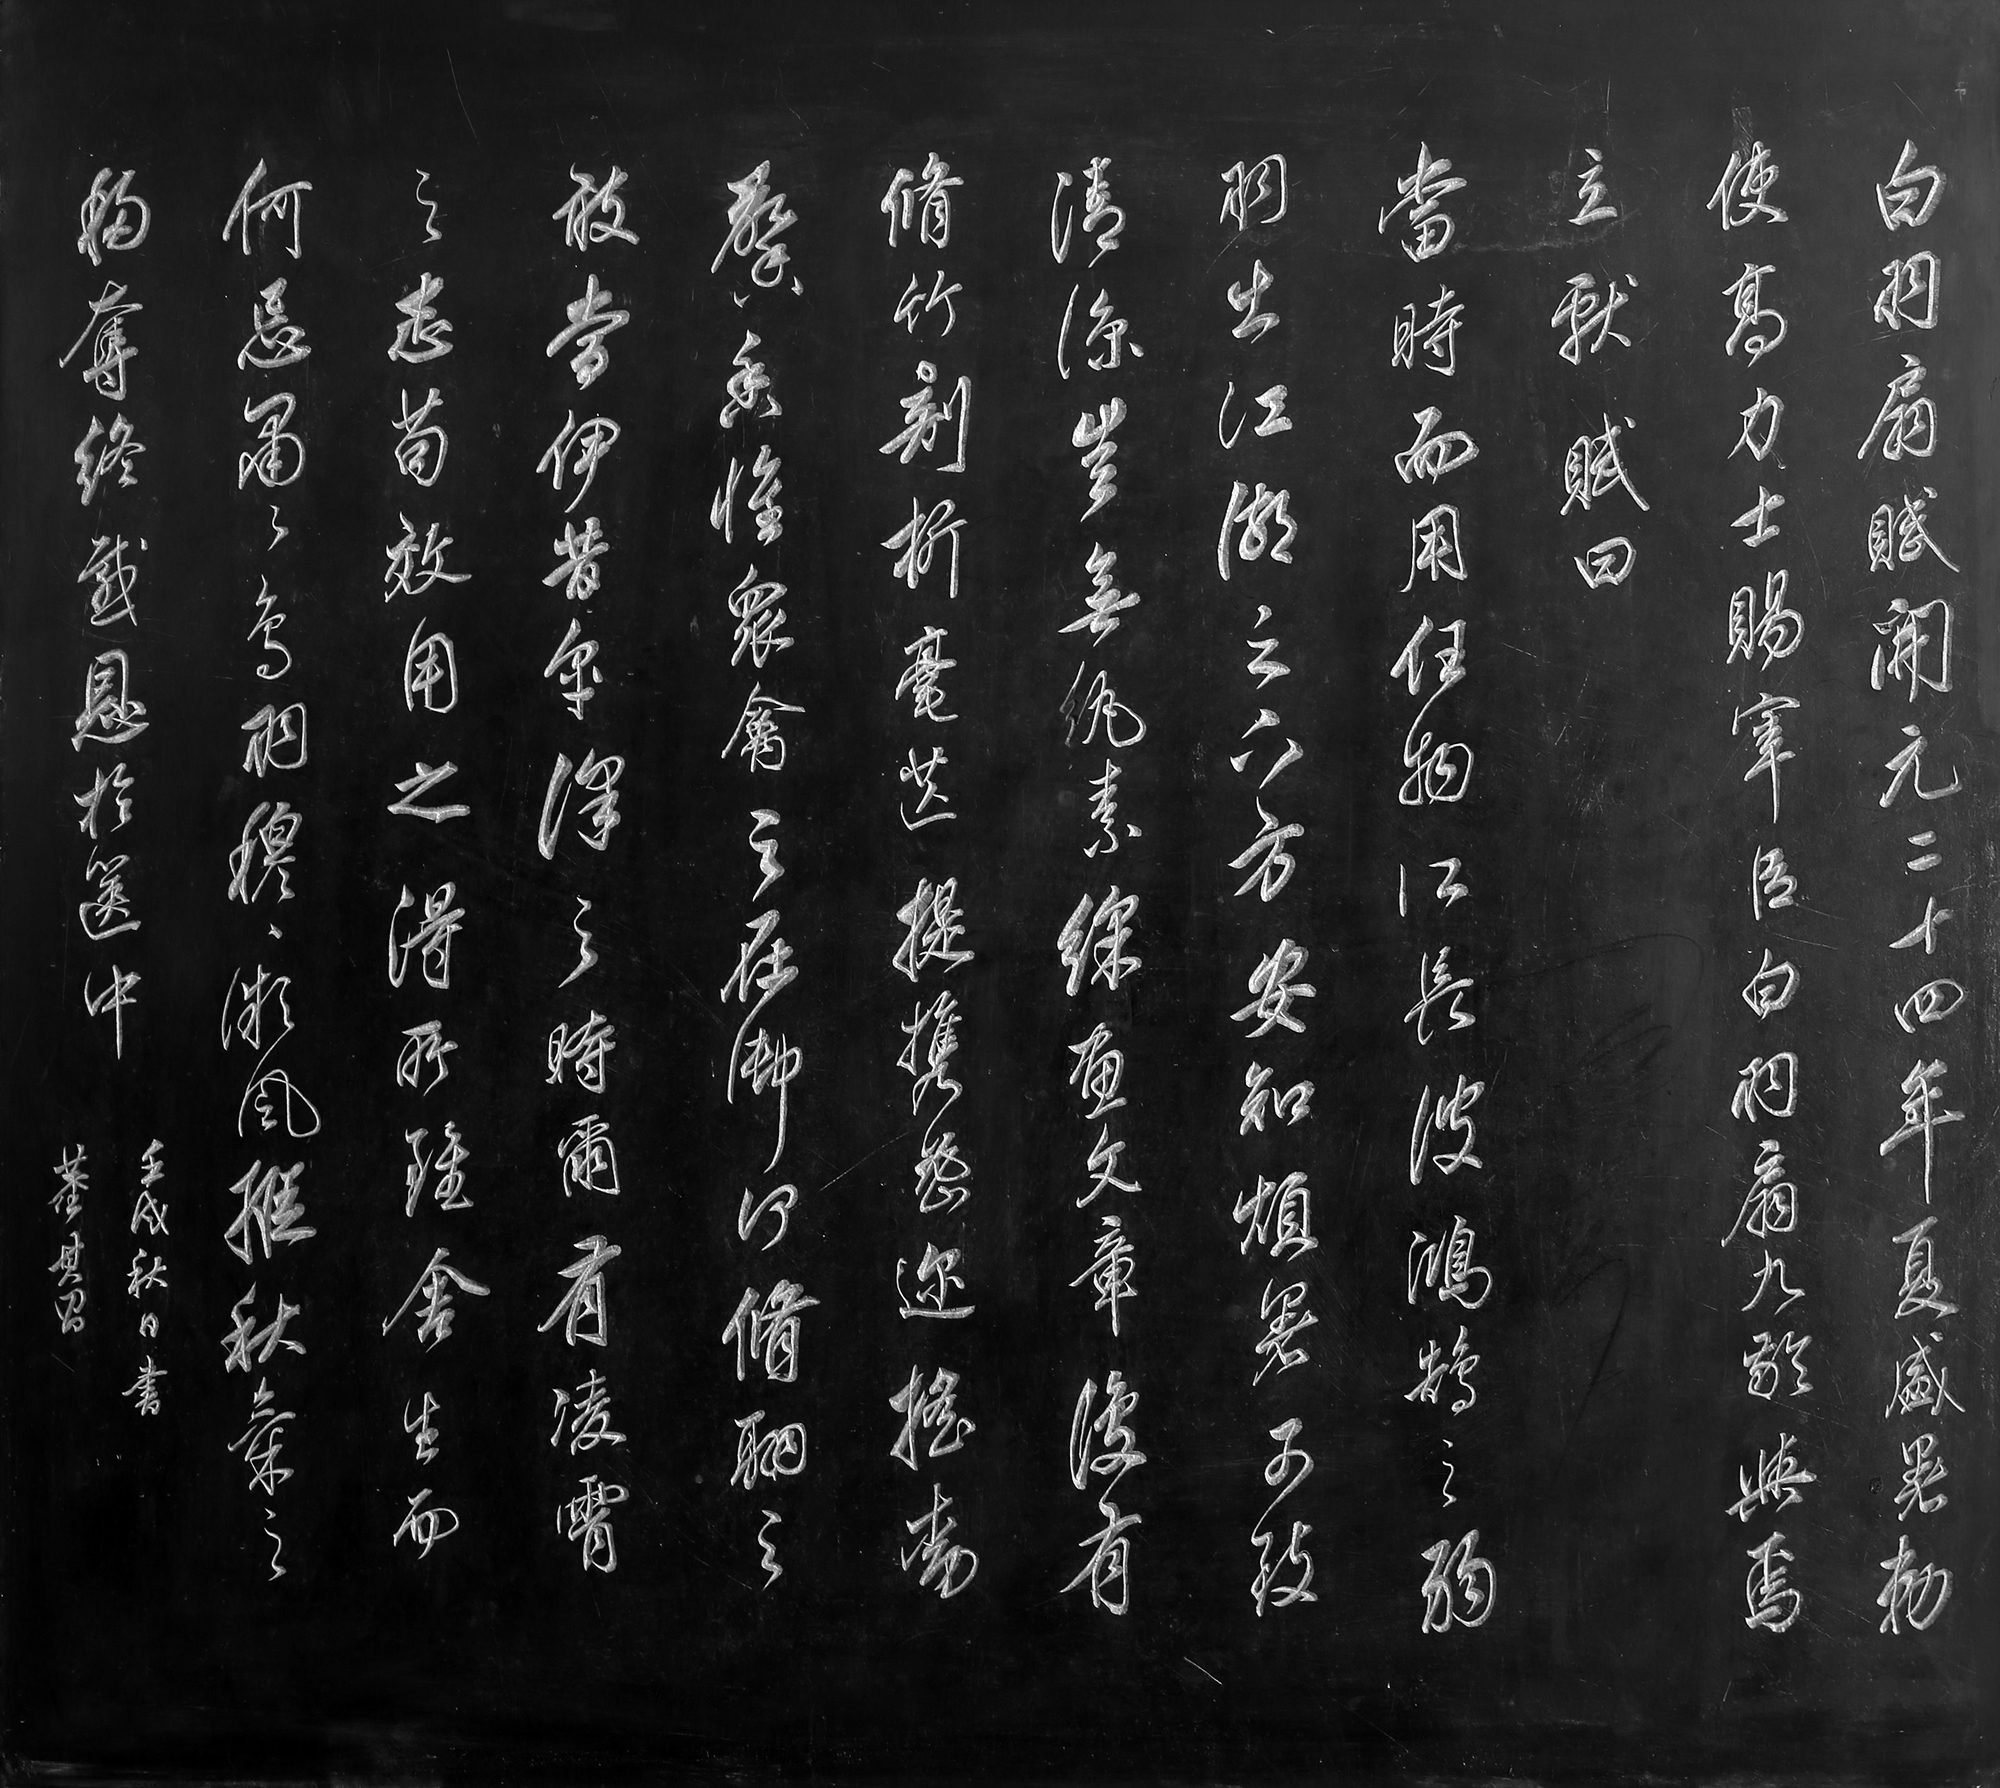 白羽扇賦開元二十四年夏盛暑勅
使高力士賜宰臣白羽扇九齡與焉
立獻賦曰
當時而用任物所長彼鴻鵠之弱
羽出江湖之下方安知煩暑可致
清涼豈無紈素綵畫文章復有
脩竹剖析毫芒提攜密邇搖動
馨香惟衆禽之在御何脩翮之
敢當伊昔皋澤之時爾有凌霄
之志苟效用之得所雖舍生而
何忌肅〻鳥羽穆〻微風縱秋氣之
移奪終感恩於篋中
壬戌秋日書
董其昌